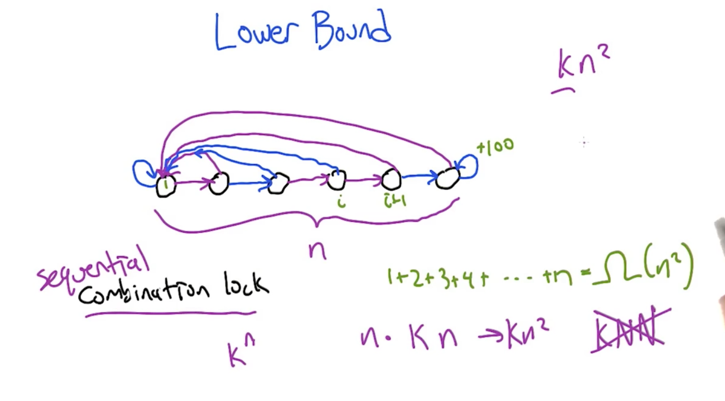 Lower Bound
kn²
+100
1
i
i+1
n
sequential
combination lock
1+2+3+4+ ... +n = Ω(n²)
kⁿ
n · k n → kn²
KNN